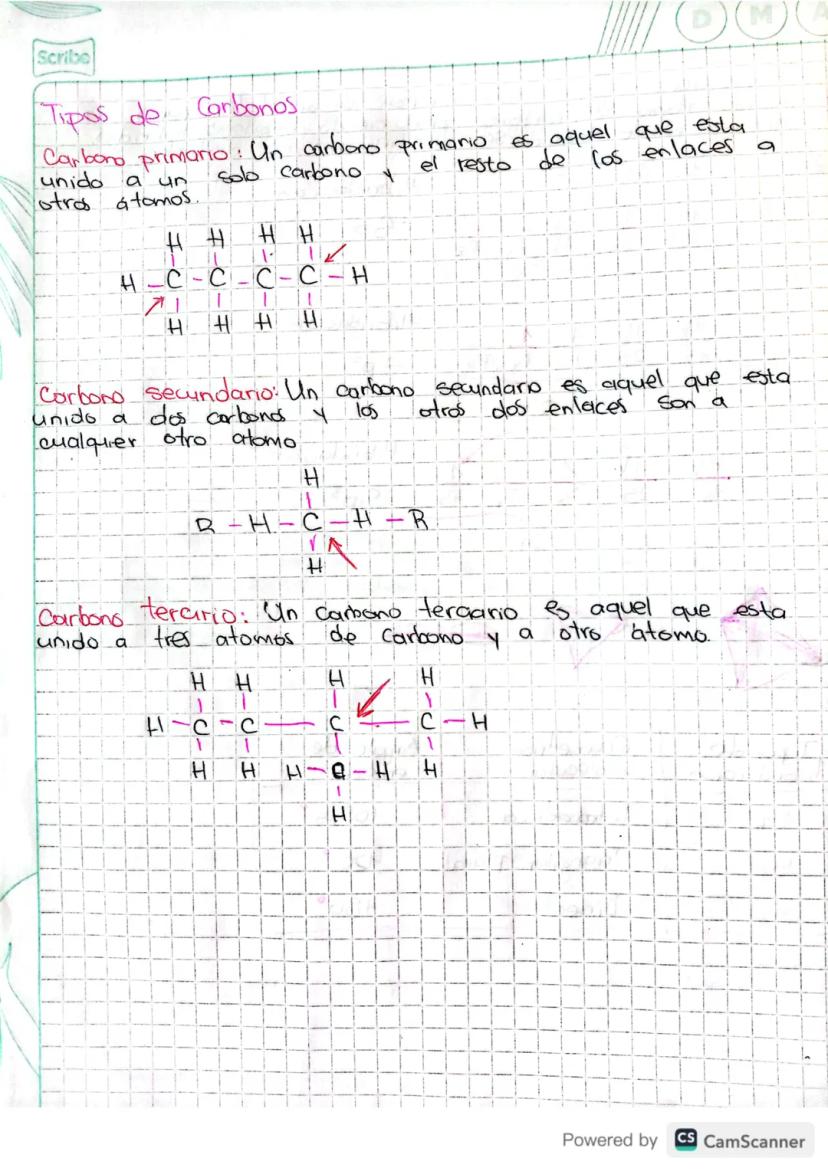 D M A
Scribe
Tipos de Carbonos
Carbono primario: Un carbono primario es aquel que esta
unido a un solo carbono y el resto de los enlaces a
otros átomos.
H H H H
H - C - C - C - C - H
H H H H
Carbono secundario: Un carbono secundario es aquel que esta
unido a dos carbonos y los otros dos enlaces son a
cualquier otro atomo
H
R - H - C - H - R
H
Carbono tercirio: Un carbono terciario es aquel que esta
unido a tres atomos de carbono y a otro átomo.
H H H H
H - C - C - C - C - H
H H H - C - H H
H
Powered by CS CamScanner